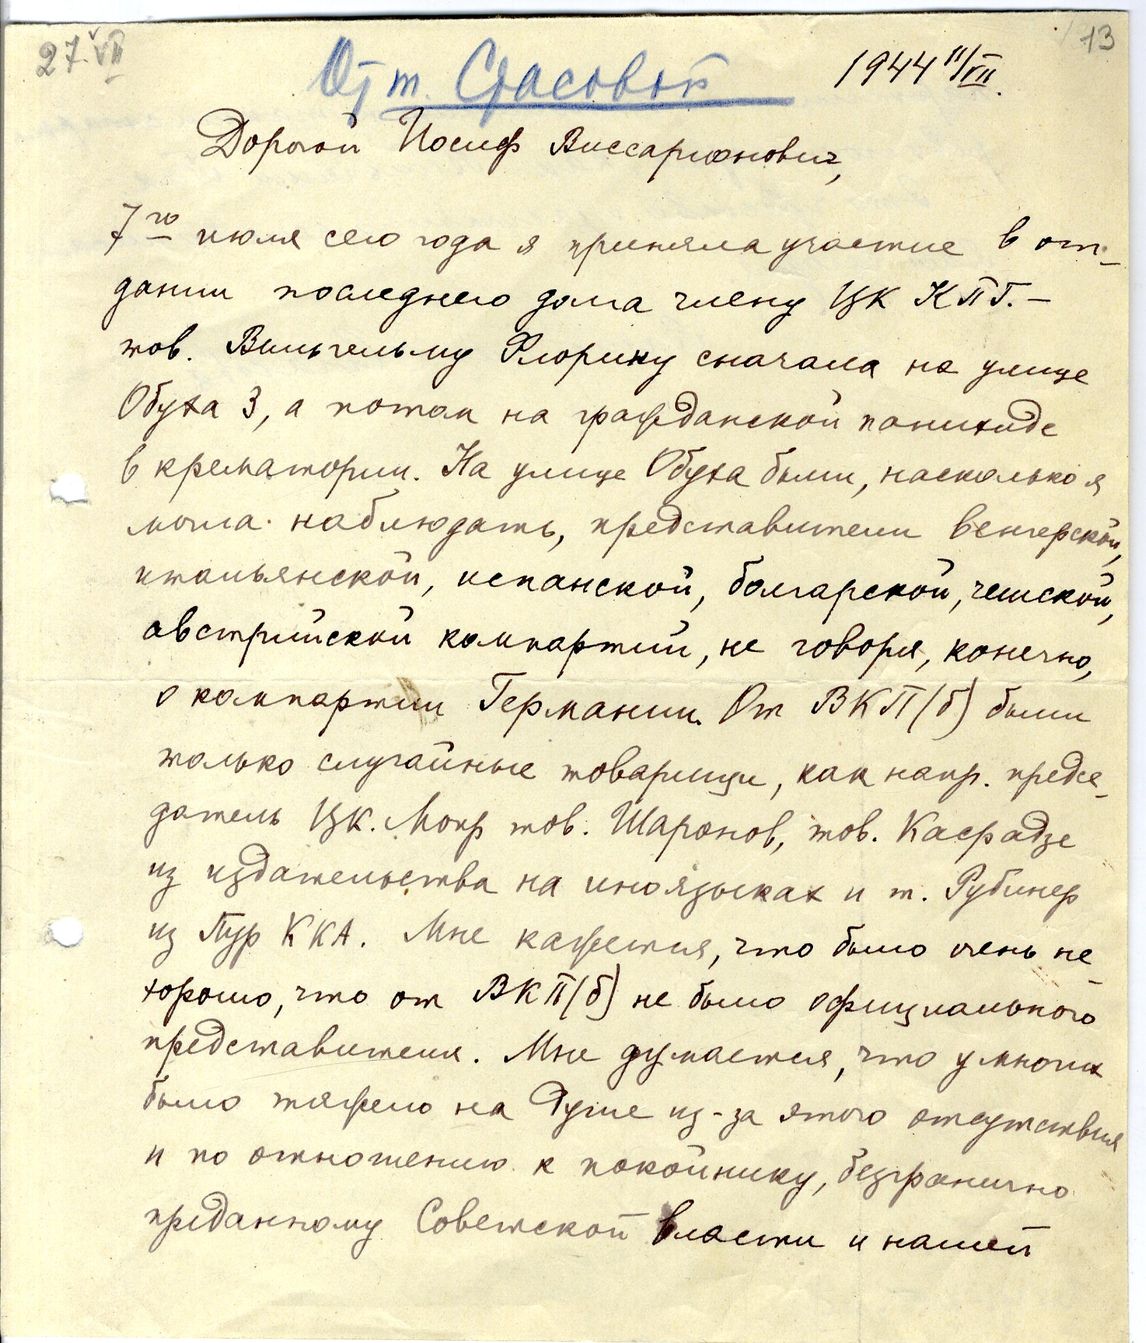 27 VII
13
От т. Стасовой
1944 11/VII.
Дорогой Иосиф Виссарионович,
7го июля сего года я приняла участие в от-
дании последнего долга члену ЦК КПГ. –
тов. Вильгельму Флорину сначала на улице
Обуха 3, а потом на гражданской панихиде
в крематории. На улице Обуха были, насколько я
могла наблюдать, представители венгерской,
итальянской, испанской, болгарской, чешской,
австрийской компартий, не говоря, конечно,
о компартии Германии. От ВКП(б) были
только случайные товарищи, как напр. предсе-
датель ЦК. Мопр тов. Шаронов, тов. Кафрадзе
из издательства на иноязыках и т. Рубинер
из Пур ККА. Мне кажется, что было очень не-
хорошо, что от ВКП(б) не было официального
представителя. Мне думается, что у многих
было тяжело на душе из-за этого отсутствия
и по отношению к покойнику, безгранично
преданному Советской власти и нашей